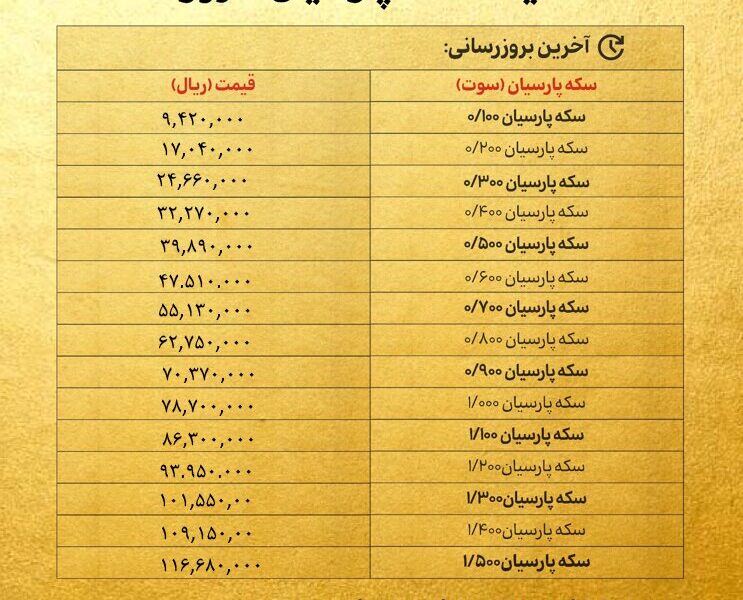 آخرین بروزرسانی:
سکه پارسیان (سوت) قیمت (ریال)
سکه پارسیان ۰/۱۰۰ ۹,۴۲۰,۰۰۰
سکه پارسیان ۰/۲۰۰ ۱۷,۰۴۰,۰۰۰
سکه پارسیان ۰/۳۰۰ ۲۴,۶۶۰,۰۰۰
سکه پارسیان ۰/۴۰۰ ۳۲,۲۷۰,۰۰۰
سکه پارسیان ۰/۵۰۰ ۳۹,۸۹۰,۰۰۰
سکه پارسیان ۰/۶۰۰ ۴۷.۵۱۰.۰۰۰
سکه پارسیان ۰/۷۰۰ ۵۵,۱۳۰,۰۰۰
سکه پارسیان ۰/۸۰۰ ۶۲,۷۵۰,۰۰۰
سکه پارسیان ۰/۹۰۰ ۷۰,۳۷۰,۰۰۰
سکه پارسیان ۱/۰۰۰ ۷۸,۷۰۰,۰۰۰
سکه پارسیان ۱/۱۰۰ ۸۶,۳۰۰,۰۰۰
سکه پارسیان۱/۲۰۰ ۹۳.۹۵۰.۰۰۰
سکه پارسیان۱/۳۰۰ ۱۰۱,۵۵۰,۰۰
سکه پارسیان۱/۴۰۰ ۱۰۹,۱۵۰,۰۰
سکه پارسیان۱/۵۰۰ ۱۱۶,۶۸۰,۰۰۰